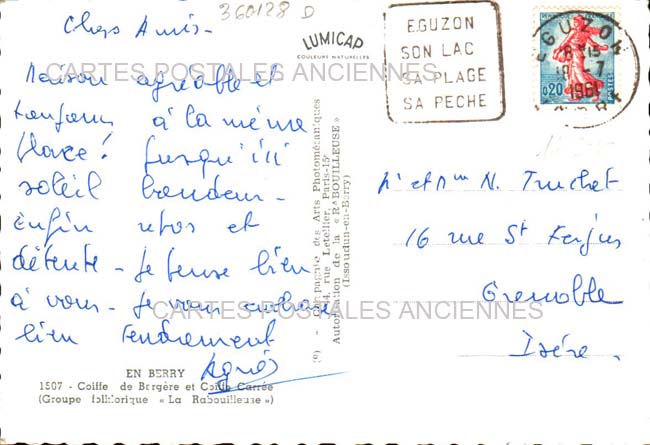 360128 D
Chers Amis-
Maison agréable et
toujours à la même
place! Jusqu'ici
soleil boudeur-
Enfin repos et
détente - Je pense bien
à vous - Je vous embrasse
bien tendrement
Agnès
EN BERRY
1507 - Coiffe de Bergère et Coiffe Carrée
(Groupe folklorique « La Rabouilleuse »)
LUMICAP
COULEURS NATURELLES
(c) - Compagnie des Arts Photomécaniques
44, rue Letellier, Paris-15e
Autorisation de la « RABOUILLEUSE »
(Issoudun-en-Berry)
EGUZON
SON LAC
SA PLAGE
SA PECHE
EGUZON
18 H 15
1961
0,20
Mr et Mme N. Truchet
16 rue St Ferjus
Grenoble
Isère.
CARTES POSTALES ANCIENNES
CARTES POSTALES ANCIENNES